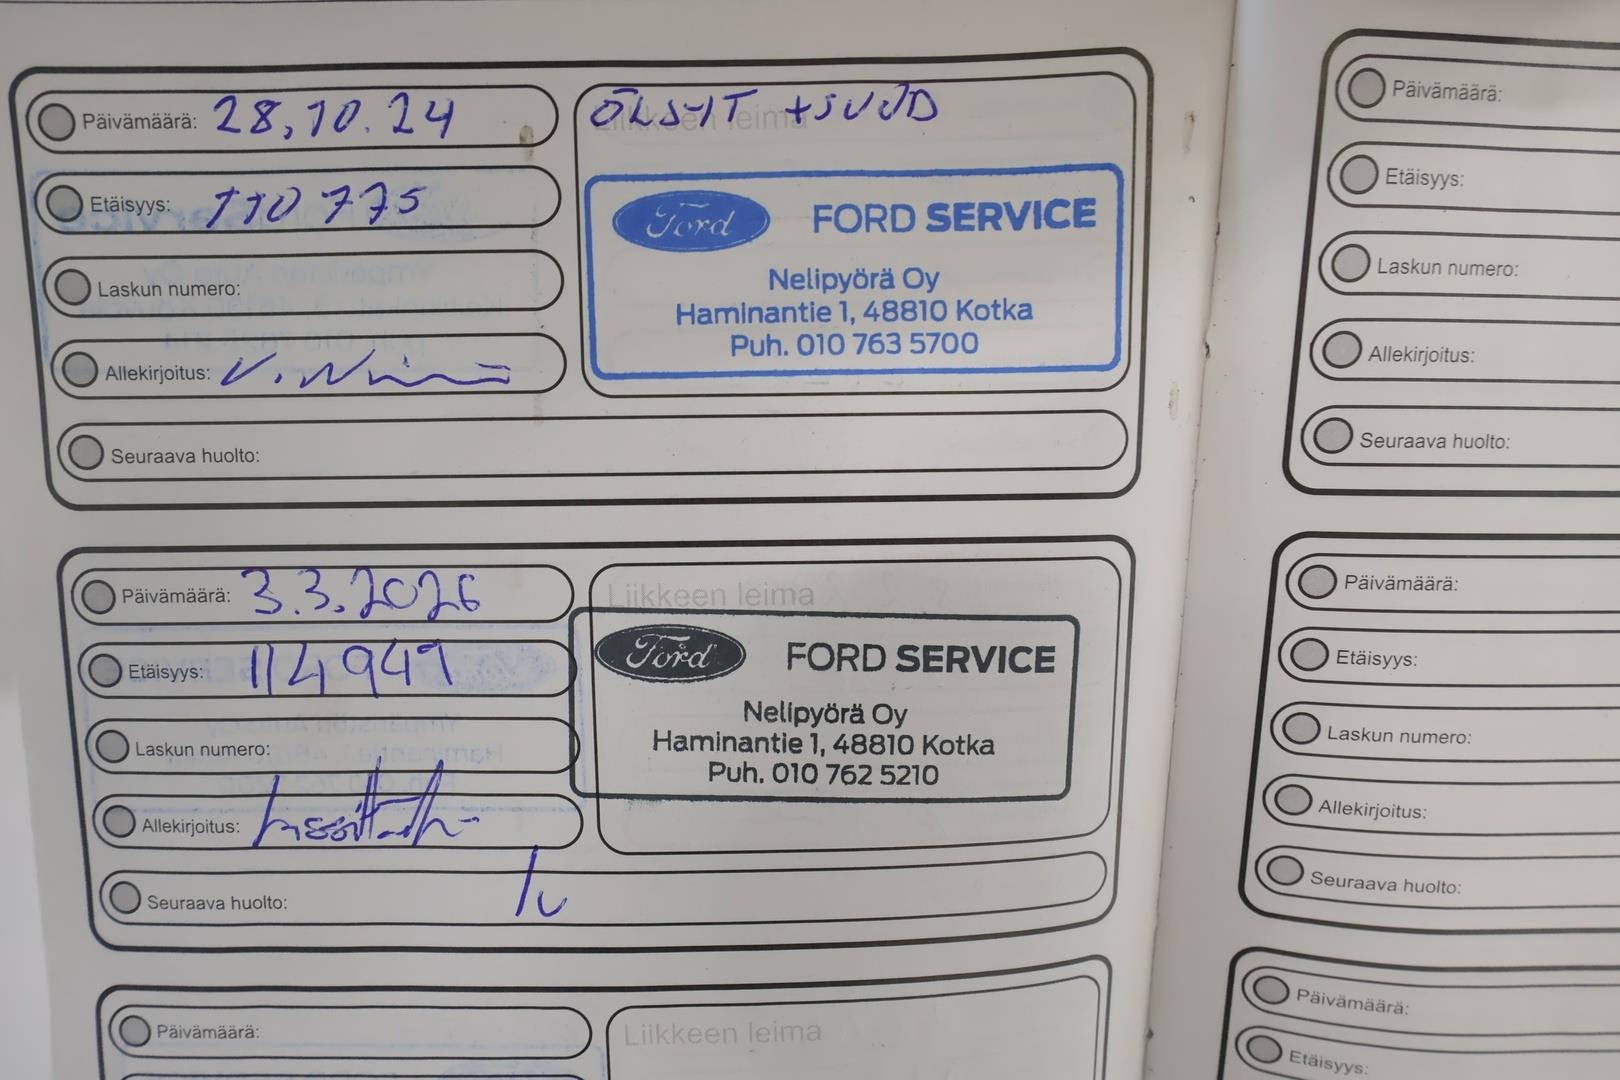 Päivämäärä: 28.10.24
Etäisyys: 110 775
Laskun numero:
Allekirjoitus:
Seuraava huolto:
Liikkeen leima
Ford FORD SERVICE
Nelipyörä Oy
Haminantie 1, 48810 Kotka
Puh. 010 763 5700
Päivämäärä: 3.3.2026
Etäisyys: 114949
Laskun numero:
Allekirjoitus:
Seuraava huolto: 1v
Liikkeen leima
Ford FORD SERVICE
Nelipyörä Oy
Haminantie 1, 48810 Kotka
Puh. 010 762 5210
Päivämäärä:
Liikkeen leima
Päivämäärä:
Etäisyys:
Laskun numero:
Allekirjoitus:
Seuraava huolto:
Päivämäärä:
Etäisyys:
Laskun numero:
Allekirjoitus:
Seuraava huolto:
Päivämäärä:
Etäisyys: